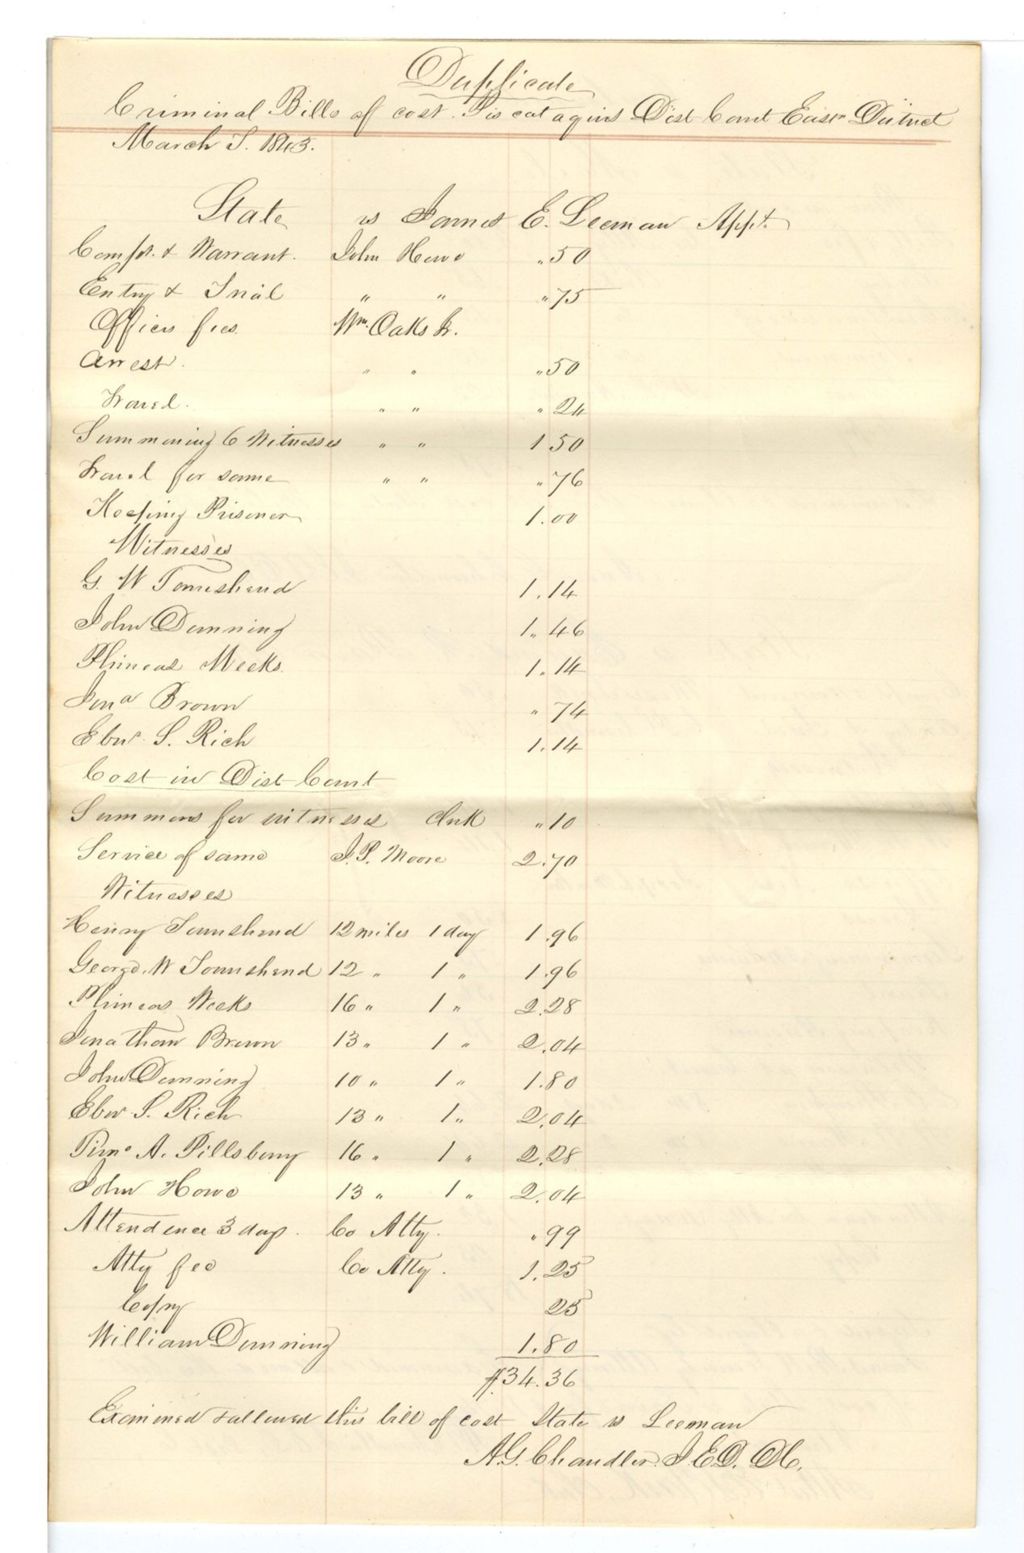 Duplicate
Criminal Bills of cost Piscataquis Dist Court Eastn District
March T. 1843.
State vs James E. Leeman Appt.
Compt. & Warrant. John Howe " 50
Entry & Trial " " " 75
Officers fees Wm. Oaks Jr.
Arrest. " " " 50
Travel. " " " 24
Summoning 6 Witnesses " " 1 50
Travel for same " " " 76
Keeping Prisoner 1.00
Witnesses
G. W Townshend 1.14
John Dunning 1.46
Phineas Weeks 1.14
Jona Brown " 74
Ebnr. S. Rich 1.14
Cost in Dist Court
Summons for witnesses Clerk " 10
Service of same J.P. Moore 2.70
Witnesses
Henry Townshend 12 miles 1 day 1.96
George W Townshend 12 " 1 " 1.96
Phineas Weeks 16 " 1 " 2.28
Jonathan Brown 13 " 1 " 2.04
John Dunning 10 " 1 " 1.80
Eber S. Rich 13 " 1 " 2.04
A. Pillsbury 16 " 1 " 2.28
John Howe 13 " 1 " 2.04
Attendence 3 days. Co Atty. " 99
Atty fee Co Atty. 1.25
Copy 25
William Dunning 1.80
$34.36
Examined & allowed this bill of cost State vs Leeman
A.G. Chandler. J. E.D. Ct.